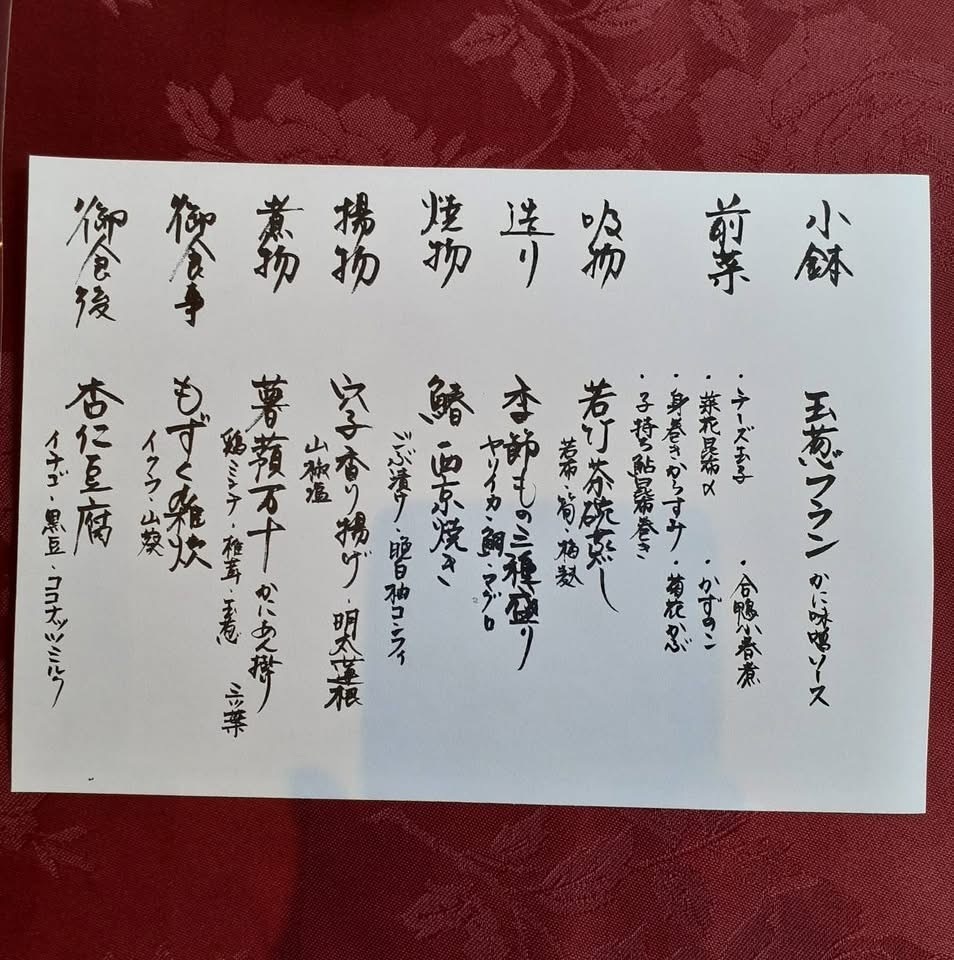 小鉢 玉葱フラン かに味噌ソース
前菜
・チーズ玉子 ・合鴨小春煮
・菜花昆布〆 ・かずのこ
・身巻きからすみ ・菊花かぶ
・子持ち鮎昆布巻き
吸物 若竹茶碗蒸し
若布・筍・梅麩
造り 季節もの三種盛り
ヤリイカ・鯛・マグロ
焼物 鰆西京焼き
ごぶ漬け・晩白柚コンフィ
揚物 穴子香り揚げ・明太蓮根
山椒塩
煮物 薯蕷万十 かにあん掛
鶏ミンチ・椎茸・玉葱 三ツ葉
御食事 もずく雑炊
イクラ・山葵
御食後 杏仁豆腐
イチゴ・黒豆・ココナッツミルク